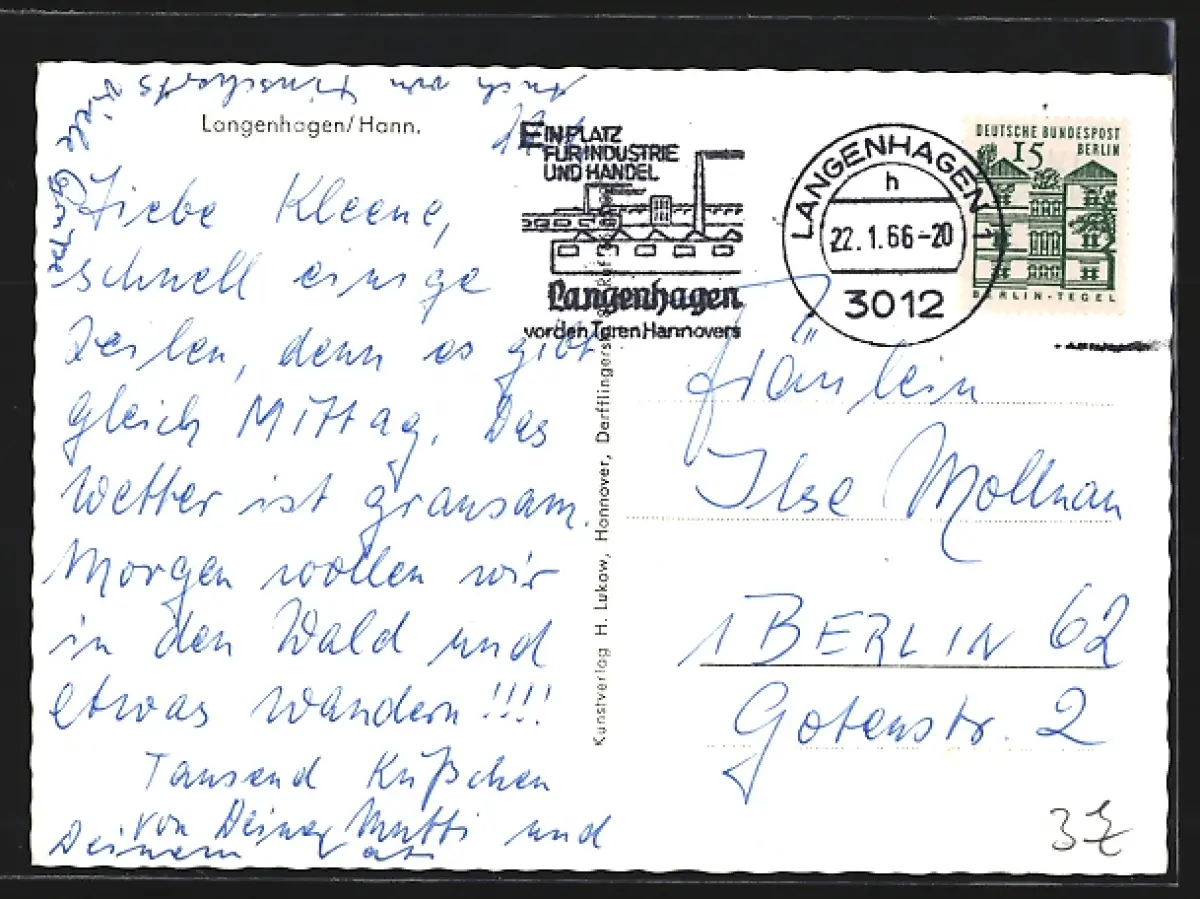 Langenhagen/Hann.
22.1.
Liebe Kleene,
schnell einige
Zeilen, denn es gibt
gleich Mittag. Das
Wetter ist grausam.
Morgen wollen wir
in den Wald und
etwas wandern!!!!
Tausend Küßchen
von Deiner Mutti und
Deinem
Auch von
viele Grüße
EIN PLATZ
FÜR INDUSTRIE
UND HANDEL
Langenhagen
vor den Toren Hannovers
LANGENHAGEN 1
h
22.1.66-20
3012
DEUTSCHE BUNDESPOST
BERLIN
15
BERLIN-TEGEL
Kunstverlag H. Lukow, Hannover, Derfflingerstr.
Fräulein
Ilse Mollnau
1 BERLIN 62
Gotenstr. 2